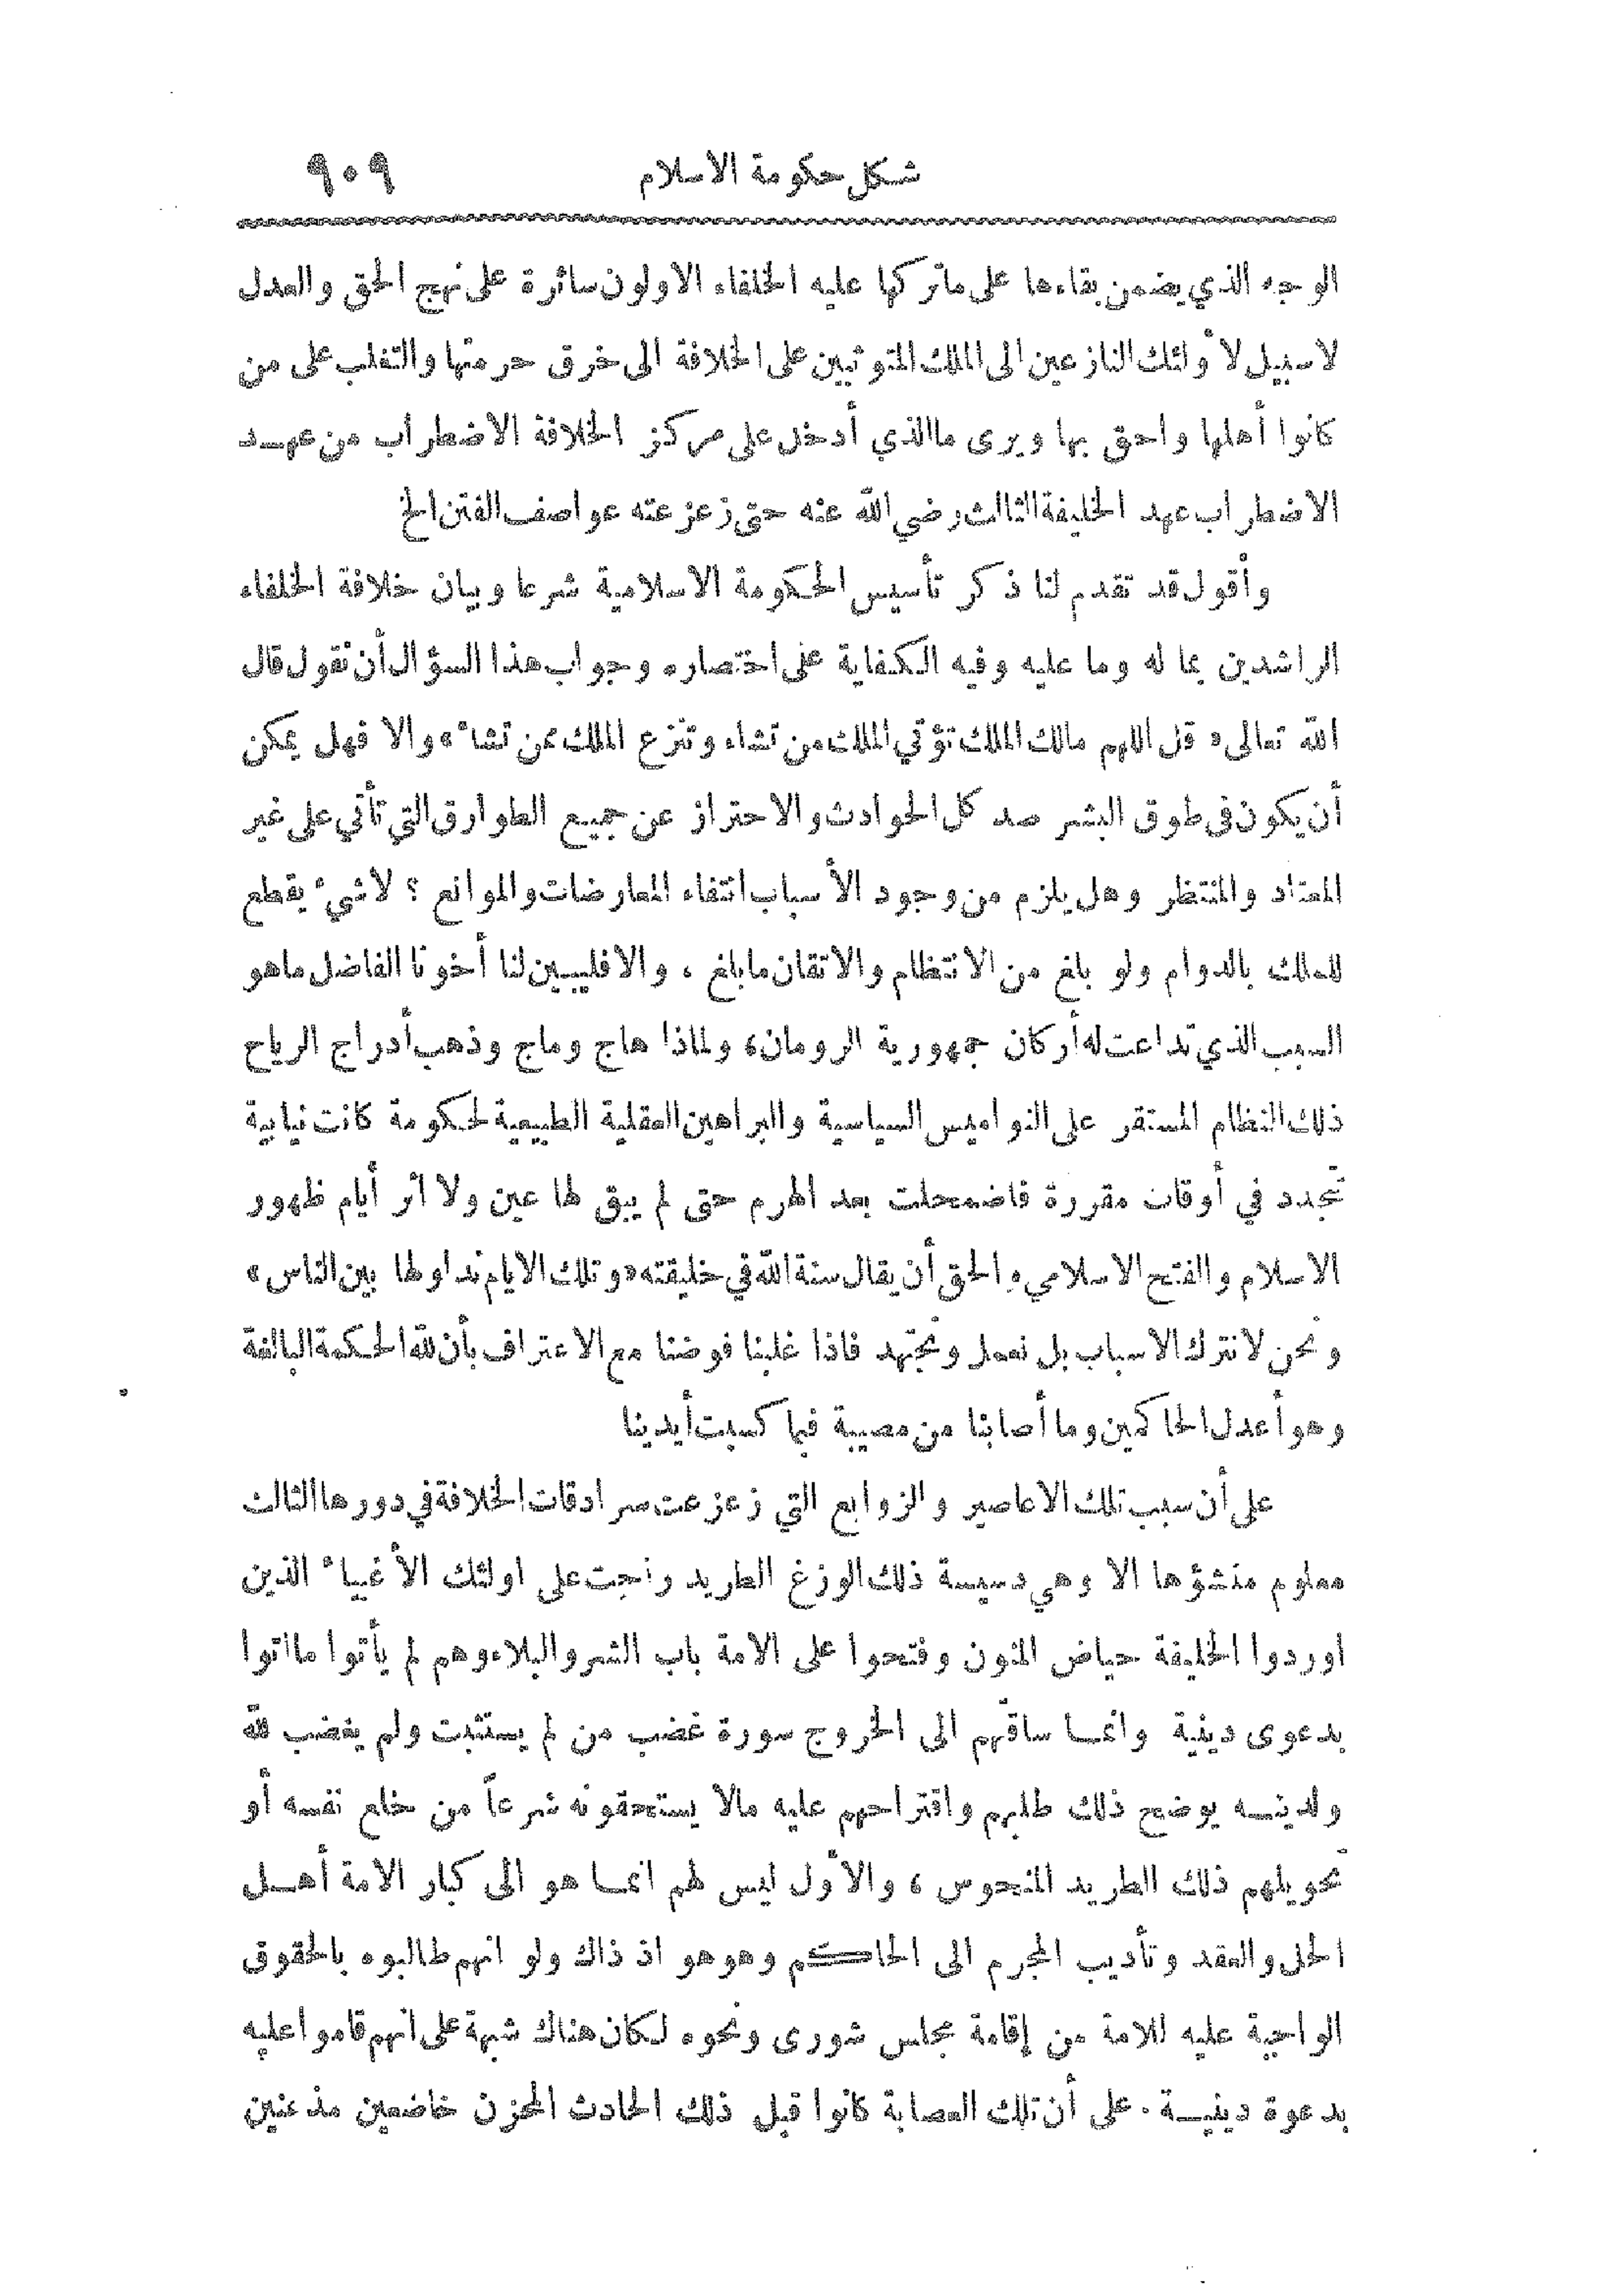 شكل حكومة الاسلام ٩٠٩
الوجه الذي يضمن بقاءها على ماتركها عليه الخلفاء الاولون سائرة على نهج الحق والعدل
لاسبيل لأولئك النازعين الى الملك المتوثبين على الخلافة الى خرق حرمتها والتغلب على من
كانوا أهلها واحق بها ويرى ماالذي أدخل على مركز الخلافة الاضطراب من عهد
الاضطراب عهد الخليفة الثالث رضي الله عنه حتى زعزعته عواصف الفتن الخ
وأقول قد تقدم لنا ذكر تأسيس الحكومة الاسلامية شرعا وبيان خلافة الخلفاء
الراشدين بما له وما عليه وفيه الكفاية على اختصاره وجواب هذا السؤال أن نقول قال
الله تعالى « قل اللهم مالك الملك تؤتي الملك من تشاء وتنزع الملك ممن تشاء » والا فهل يمكن
أن يكون في طوق البشر صد كل الحوادث والاحتراز عن جميع الطوارق التي تأتي على غير
المعتاد والمنتظر وهل يلزم من وجود الأسباب انتفاء المعارضات والموانع ؟ لاشيء يقطع
للملك بالدوام ولو بلغ من الانتظام والاتقان مابلغ ، والا فليبين لنا أخونا الفاضل ماهو
السبب الذي تداعت له أركان جمهورية الرومان، ولماذا هاج وماج وذهب أدراج الرياح
ذلك النظام المستقر على النواميس السياسية والبراهين العقلية الطبيعية لحكومة كانت نيابية
تجدد في أوقات مقررة فاضمحلت بعد الهرم حتى لم يبق لها عين ولا اثر أيام ظهور
الاسلام والفتح الاسلامي والحق أن يقال سنة الله في خليقته « وتلك الايام نداولها بين الناس »
ونحن لانترك الاسباب بل نعمل ونجتهد فاذا غلبنا فوضنا مع الاعتراف بأن لله الحكمة البالغة
وهو أعدل الحاكمين وما أصابنا من مصيبة فبما كسبت أيدينا
على أن سبب تلك الاعاصير والزوابع التي زعزعت سرادقات الخلافة في دورها الثالث
معلوم منشؤها الا وهي دسيسة ذلك الوزغ الطريد راجت على اولئك الأغبياء الذين
اوردوا الخليفة حياض المنون وفتحوا على الامة باب الشر والبلاء وهم لم يأتوا مااتوا
بدعوى دينية وانما ساقهم الى الخروج سورة غضب من لم يستثبت ولم يغضب لله
ولدينه يوضح ذلك طلبهم واقتراحهم عليه مالا يستحقونه شرعاً من خلع نفسه أو
تحويلهم ذلك الطريد المنحوس ، والأول ليس لهم انما هو الى كبار الامة أهل
الحل والعقد وتأديب المجرم الى الحاكم وهو هو اذ ذاك ولو انهم طالبوه بالحقوق
الواجبة عليه للامة من إقامة مجلس شورى ونحوه لكان هناك شبهة على انهم قاموا عليه
بدعوة دينية . على أن تلك العصابة كانوا قبل ذلك الحادث المحزن خاضعين مذعنين